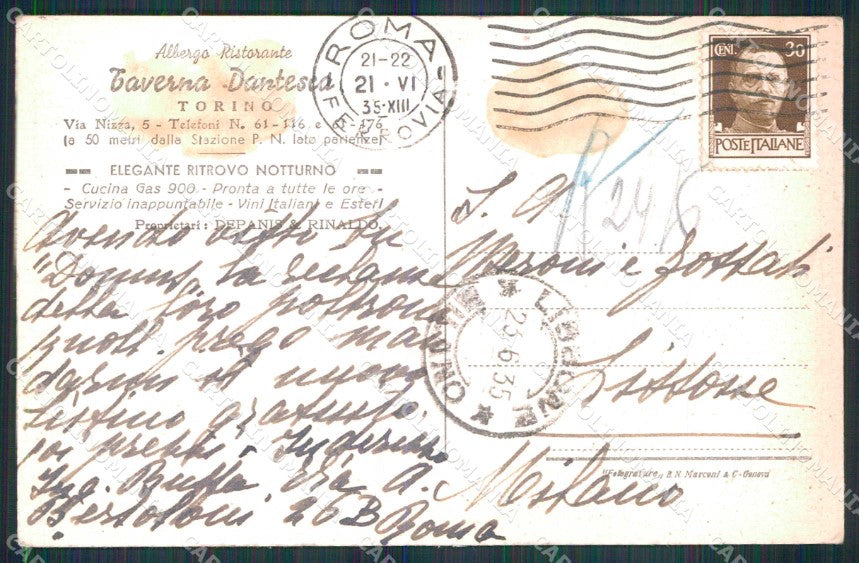 Albergo Ristorante
Taverna Dantesca
TORINO
Via Nizza, 5 - Telefoni N. 61-116 e
(a 50 metri dalla Stazione P. N. lato partenze)
ELEGANTE RITROVO NOTTURNO
- Cucina Gas 900 - Pronta a tutte le ore -
Servizio inappuntabile - Vini Italiani e Esteri
Proprietari: DEPANIS & RINALDO
Avendo visto su
"Domus" la reclame
della loro poltrona
prego man
darmi il nuovo
listino gratuito
poi prezzi - Indirizzo
Ing. Buffa Via A.
Bertoloni 26B Roma
ROMA FERROVIA
21-22
21·VI
35·XIII
CENT. 30
POSTE ITALIANE
R 2416
S. A.
Meroni e Fossati
LISSONE
23·6·35
Lissone
Milano
"Fotogravure" B.N. Marconi & C - Genova
CARTOLINOMANIA